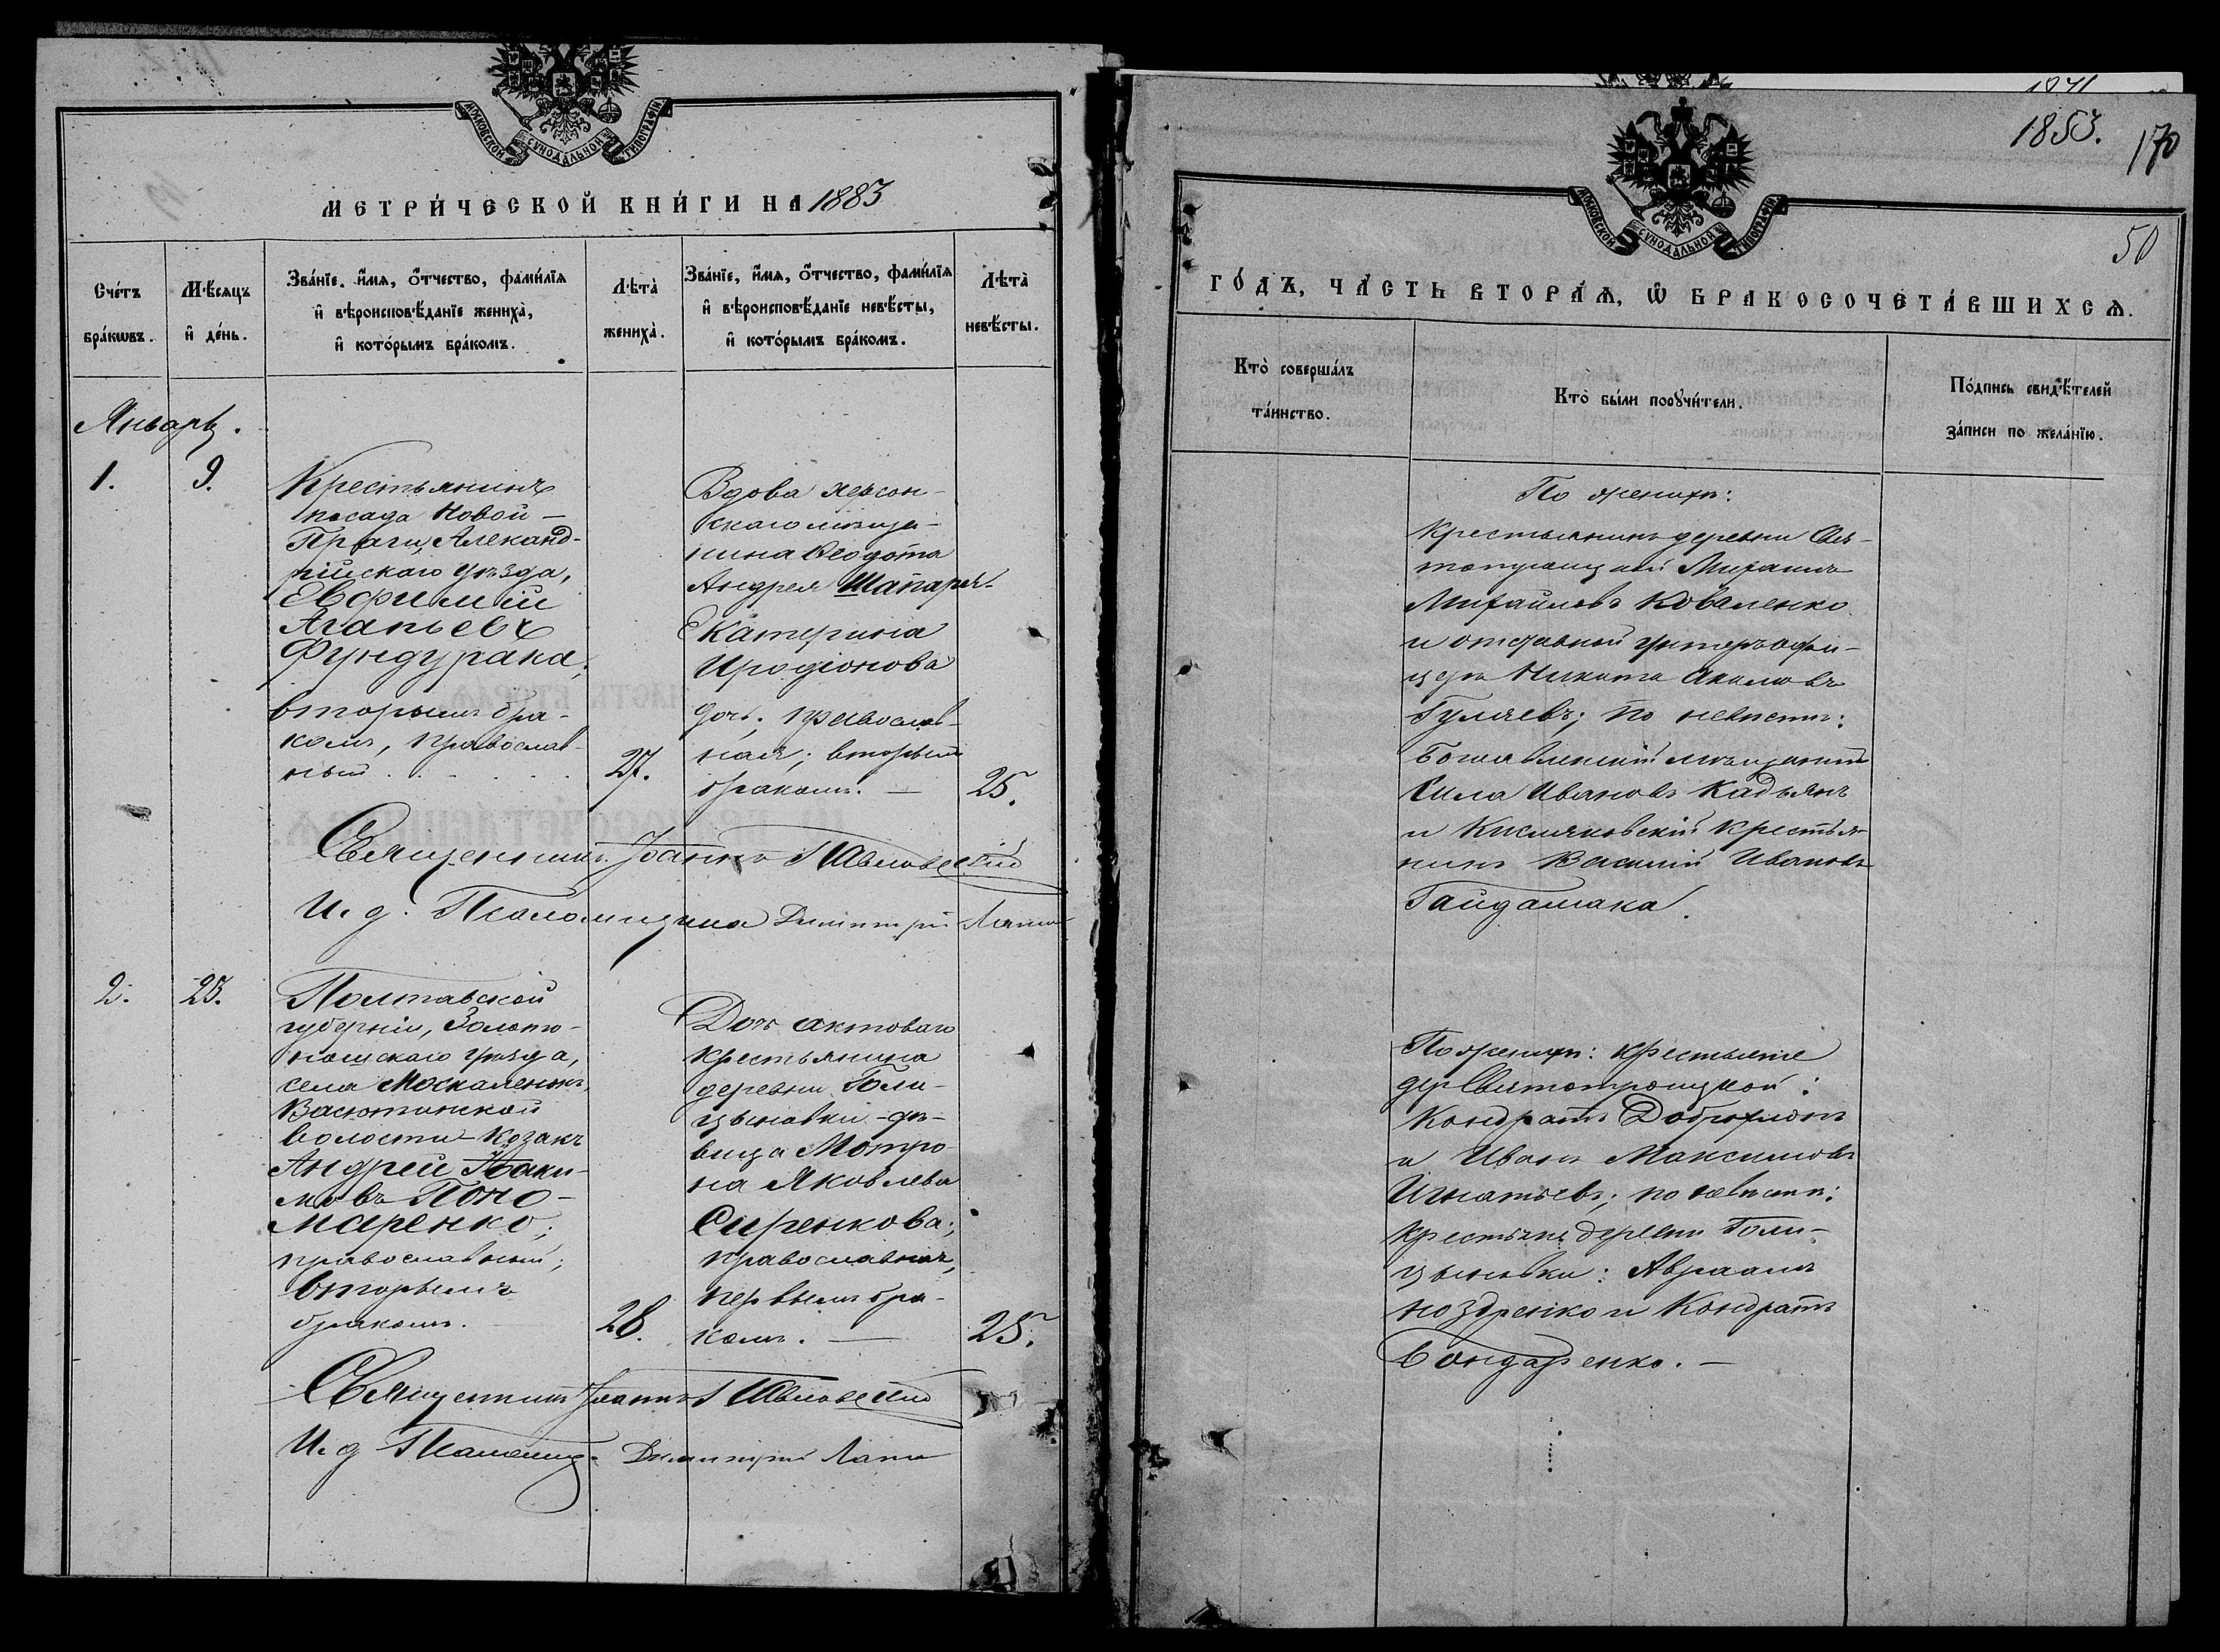 МОСКОВСКОЙ СѴНОДАЛЬНОЙ ТИПОГРАФІИ
МЕТРИ́ЧЕСКОЙ КНИ́ГИ НА 1883
Сче́тъ бра́кѡвъ.
Мѣ́сяцъ и҆ де́нь.
Зва́нїе, и҆́мя, ѻ҆́тчество, фами́лїя
и҆ вѣроисповѣ́данїе жениха̀,
и҆ кото́рымъ бра́комъ.
Лѣта̀ жениха̀.
Зва́нїе, и҆́мя, ѻ҆́тчество, фами́лїя
и҆ вѣроисповѣ́данїе невѣ́сты,
и҆ кото́рымъ бра́комъ.
Лѣта̀ невѣ́сты.
Январь.
1.
9.
Крестьянинъ
посада Новой-
Праги, Александ-
рійскаго уѣзда,
Евфимій
Агапьевъ
Фундурака,
вторымъ бра-
комъ, православ-
ный . . . .
27.
Вдова Херсон-
скаго мѣща-
нина Ѳеодота
Андрея Шапаря
Екатерина
Иродіонова
дочь, православ-
ная; вторымъ
бракомъ. —
25.
Священникъ Іоаннъ Павловскій
И. д. Псаломщика Димитрій
2.
23.
Полтавской
губерніи, Золото-
ношскаго уѣзда,
села Москаленокъ
Васютинской
волости - Козакъ
Андрей Іоаки-
мовъ Поно-
маренко;
православный;
вторымъ
бракомъ.
28.
Дочь актоваго
крестьянина
деревни Голи-
цыновки - дѣ-
вица Мотро-
на Яковлева
Сиренкова;
православная,
первымъ бра-
комъ. —
25.
Священникъ Іоаннъ Павловскій
И. д. Псаломщ. Димитрій
1853.
170
50
МОСКОВСКОЙ СѴНОДАЛЬНОЙ ТИПОГРАФІИ
ГО́ДЪ, ЧА́СТЬ ВТОРА́Ѧ, Ѡ҆ БРАКОСОЧЕТА́ВШИХСѦ.
Кто̀ соверша́лъ
та́инство.
Кто̀ бы́ли порꙋчи́тели.
По́дпись свидѣ́телей
за́писи по жела́нїю.
По женихѣ:
Крестьянинъ деревни Свя-
тотроицкой Михаилъ
Михайловъ Коваленко
и отставной унтеръ-офи-
церъ Никита
Гуляевъ; по невѣстѣ:
Богоявленскій мѣщанинъ
Сила Ивановъ Кадьянъ
и Кисляковскій крестья-
нинъ Василій Ивановъ
Гайдамака.
По женихѣ: крестьяне
дер Святотроицкой:
Кондратъ
и Иванъ Максимовъ
Игнатьевъ; по невѣстѣ:
крестьяне деревни Голи-
цыновки: Авраамъ
Ноздренко и Кондратъ
Бондаренко. —